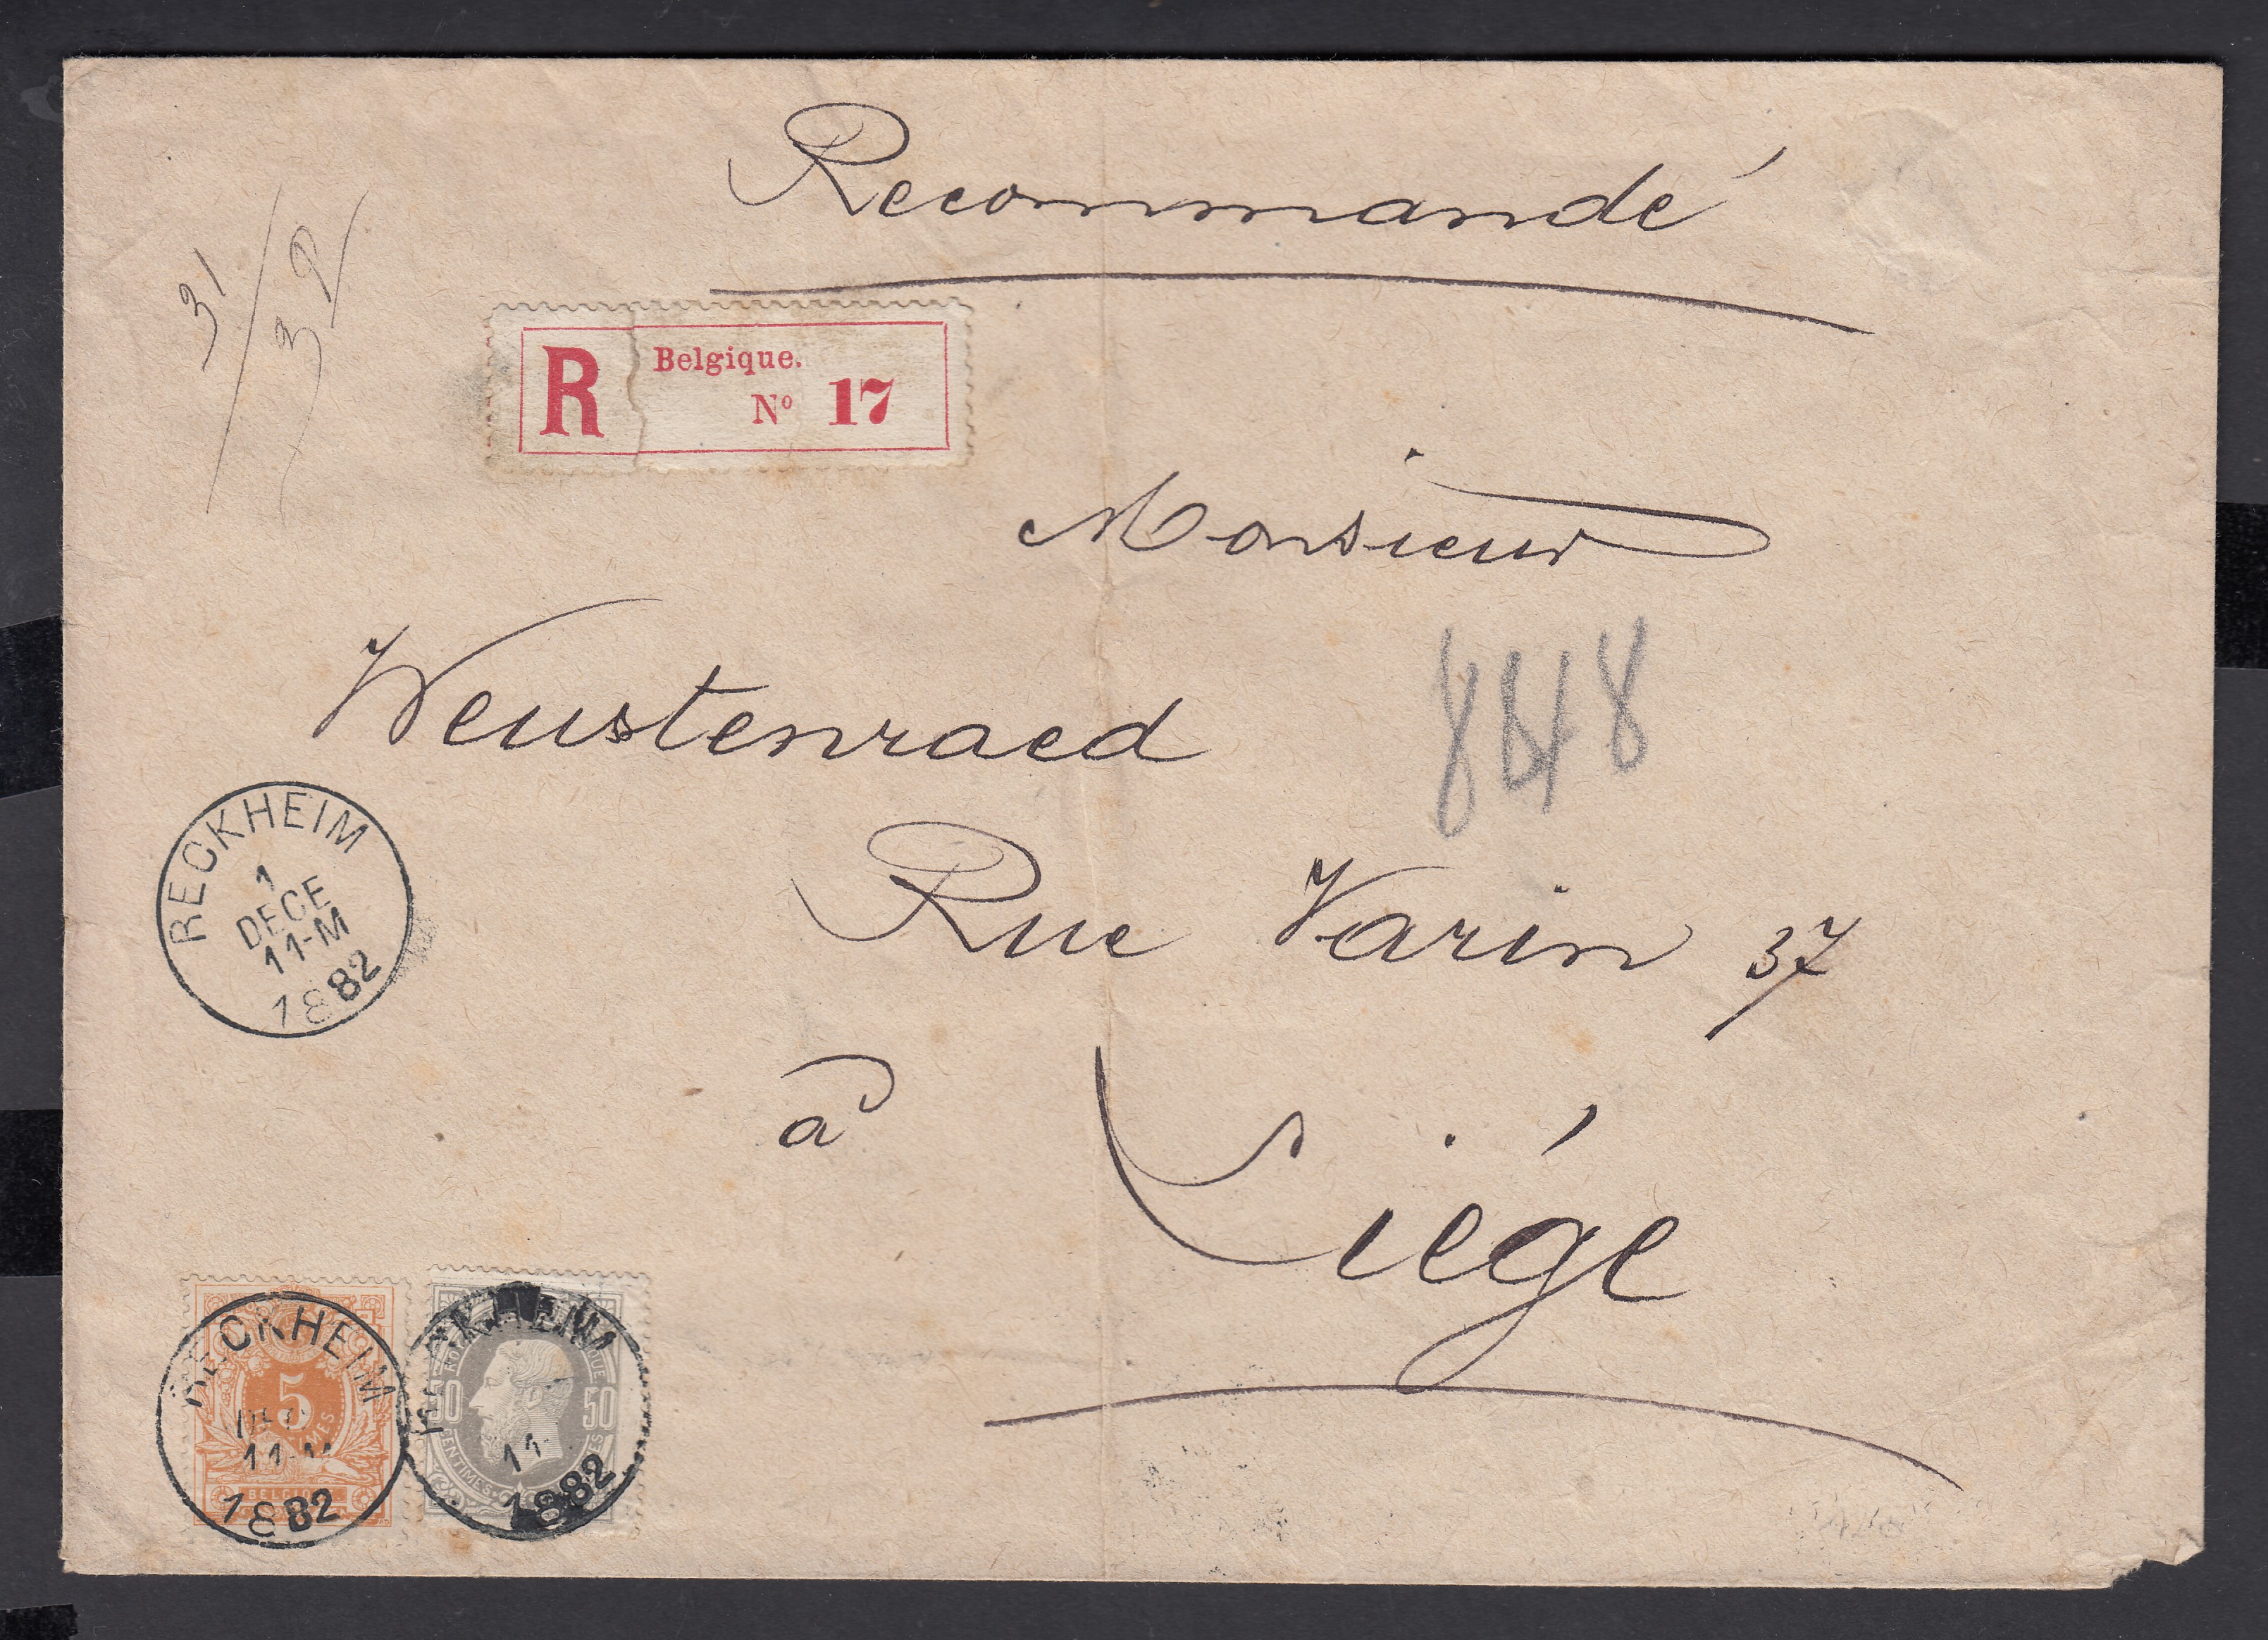 Recommandé
31/32/
R Belgique.
Nº 17
Monsieur
Weustenraed
Rue Varin 37
RECKHEIM
1
DECE
11-M
1882
à Liége
RECKHEIM
11-M
1882
5
CENTIMES
BELGIQUE
RECKHEIM
11-
1882
50 50
CENTIMES